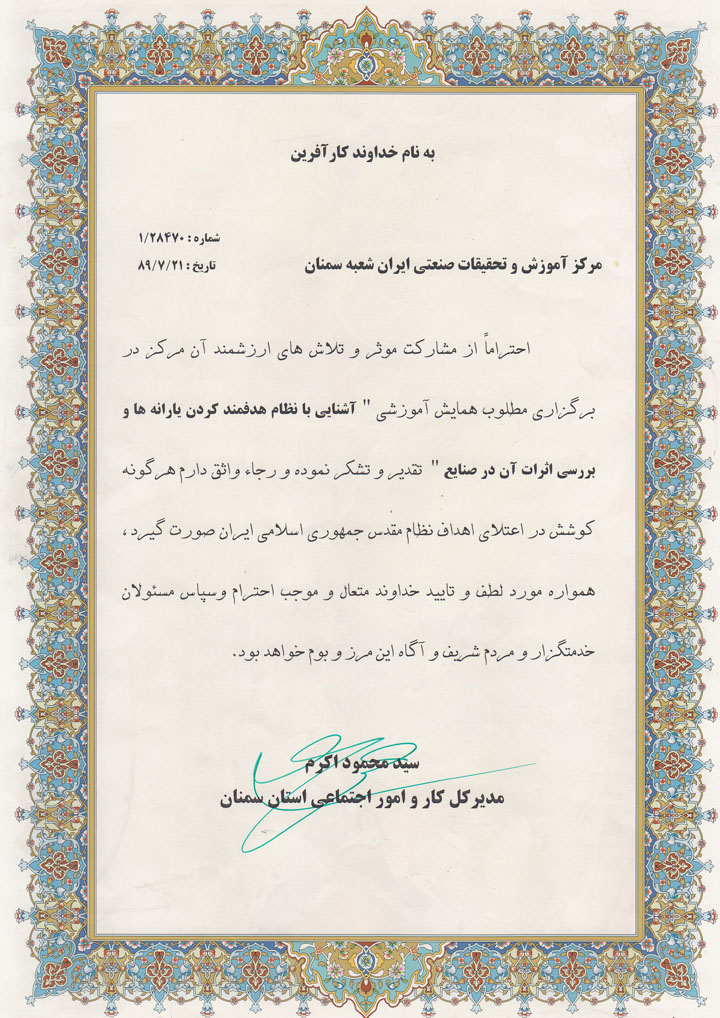 به نام خداوند کارآفرین
شماره : ۱/۲۸۴۷۰
تاریخ : ۸۹/۷/۲۱
مرکز آموزش و تحقیقات صنعتی ایران شعبه سمنان
احتراماً از مشارکت موثر و تلاش های ارزشمند آن مرکز در
برگزاری مطلوب همایش آموزشی " آشنایی با نظام هدفمند کردن یارانه ها و
بررسی اثرات آن در صنایع " تقدیر و تشکر نموده و رجاء واثق دارم هرگونه
کوشش در اعتلای اهداف نظام مقدس جمهوری اسلامی ایران صورت گیرد ،
همواره مورد لطف و تایید خداوند متعال و موجب احترام وسپاس مسئولان
خدمتگزار و مردم شریف و آگاه این مرز و بوم خواهد بود.
سید محمود اکرم
مدیرکل کار و امور اجتماعی استان سمنان